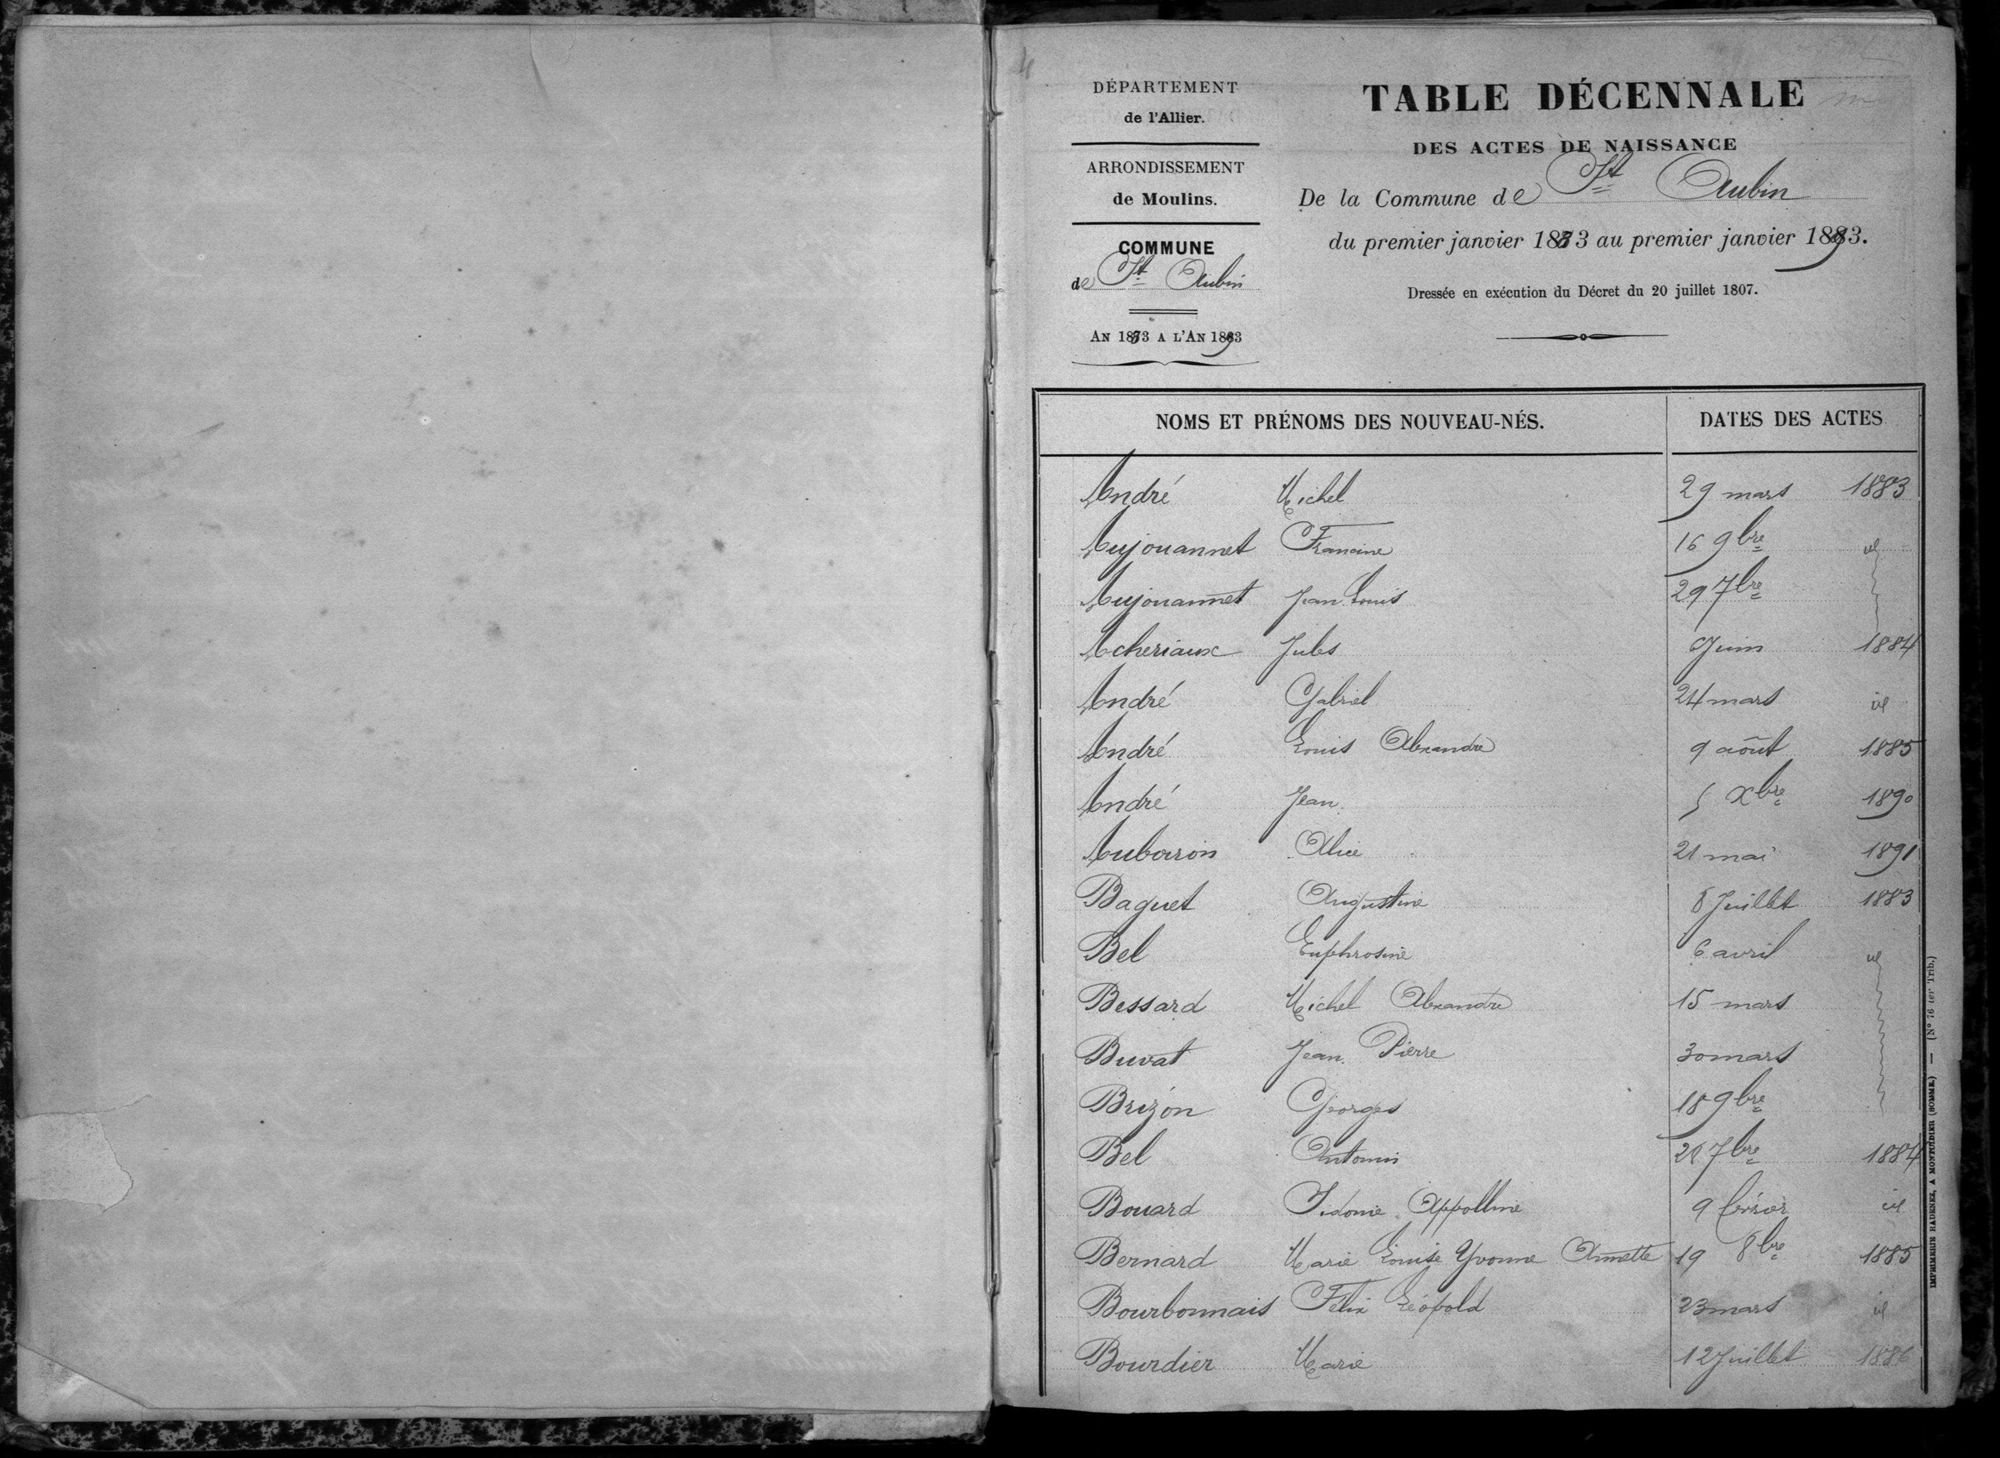 DÉPARTEMENT
de l'Allier.
ARRONDISSEMENT
de Moulins.
COMMUNE
de St Aubin
AN 1883 A L'AN 1893
TABLE DÉCENNALE
DES ACTES DE NAISSANCE
De la Commune de St Aubin
du premier janvier 1883 au premier janvier 1893.
Dressée en exécution du Décret du 20 juillet 1807.
NOMS ET PRÉNOMS DES NOUVEAU-NÉS. DATES DES ACTES
André Michel 29 mars 1883
Aujouannet Francine 16 9bre id
Aujouannet Jean Louis 29 7bre
Acheriaux Jules 9 Juin 1884
André Gabriel 24 mars id
André Louis Alexandre 9 août 1885
André Jean 5 Xbre 1890
Auboiron Alice 21 mai 1891
Baguet Augustine 8 Juillet 1883
Bel Euphrosine 6 avril id
Bessard Michel Alexandre 15 mars
Buvat Jean Pierre 30 mars
Brizon Georges 18 9bre
Bel Antonin 7bre 1884
Bouard Sidonie Appolline 9 février id
Bernard Marie Louise Yvonne Annette 19 8bre 1885
Bourbonnais Félix Léopold 23 mars id
Bourdier Marie 12 Juillet 1886
IMPRIMERIE RADENEZ, A MONTDIDIER (SOMME.) — (N° 76 ter Trib.)